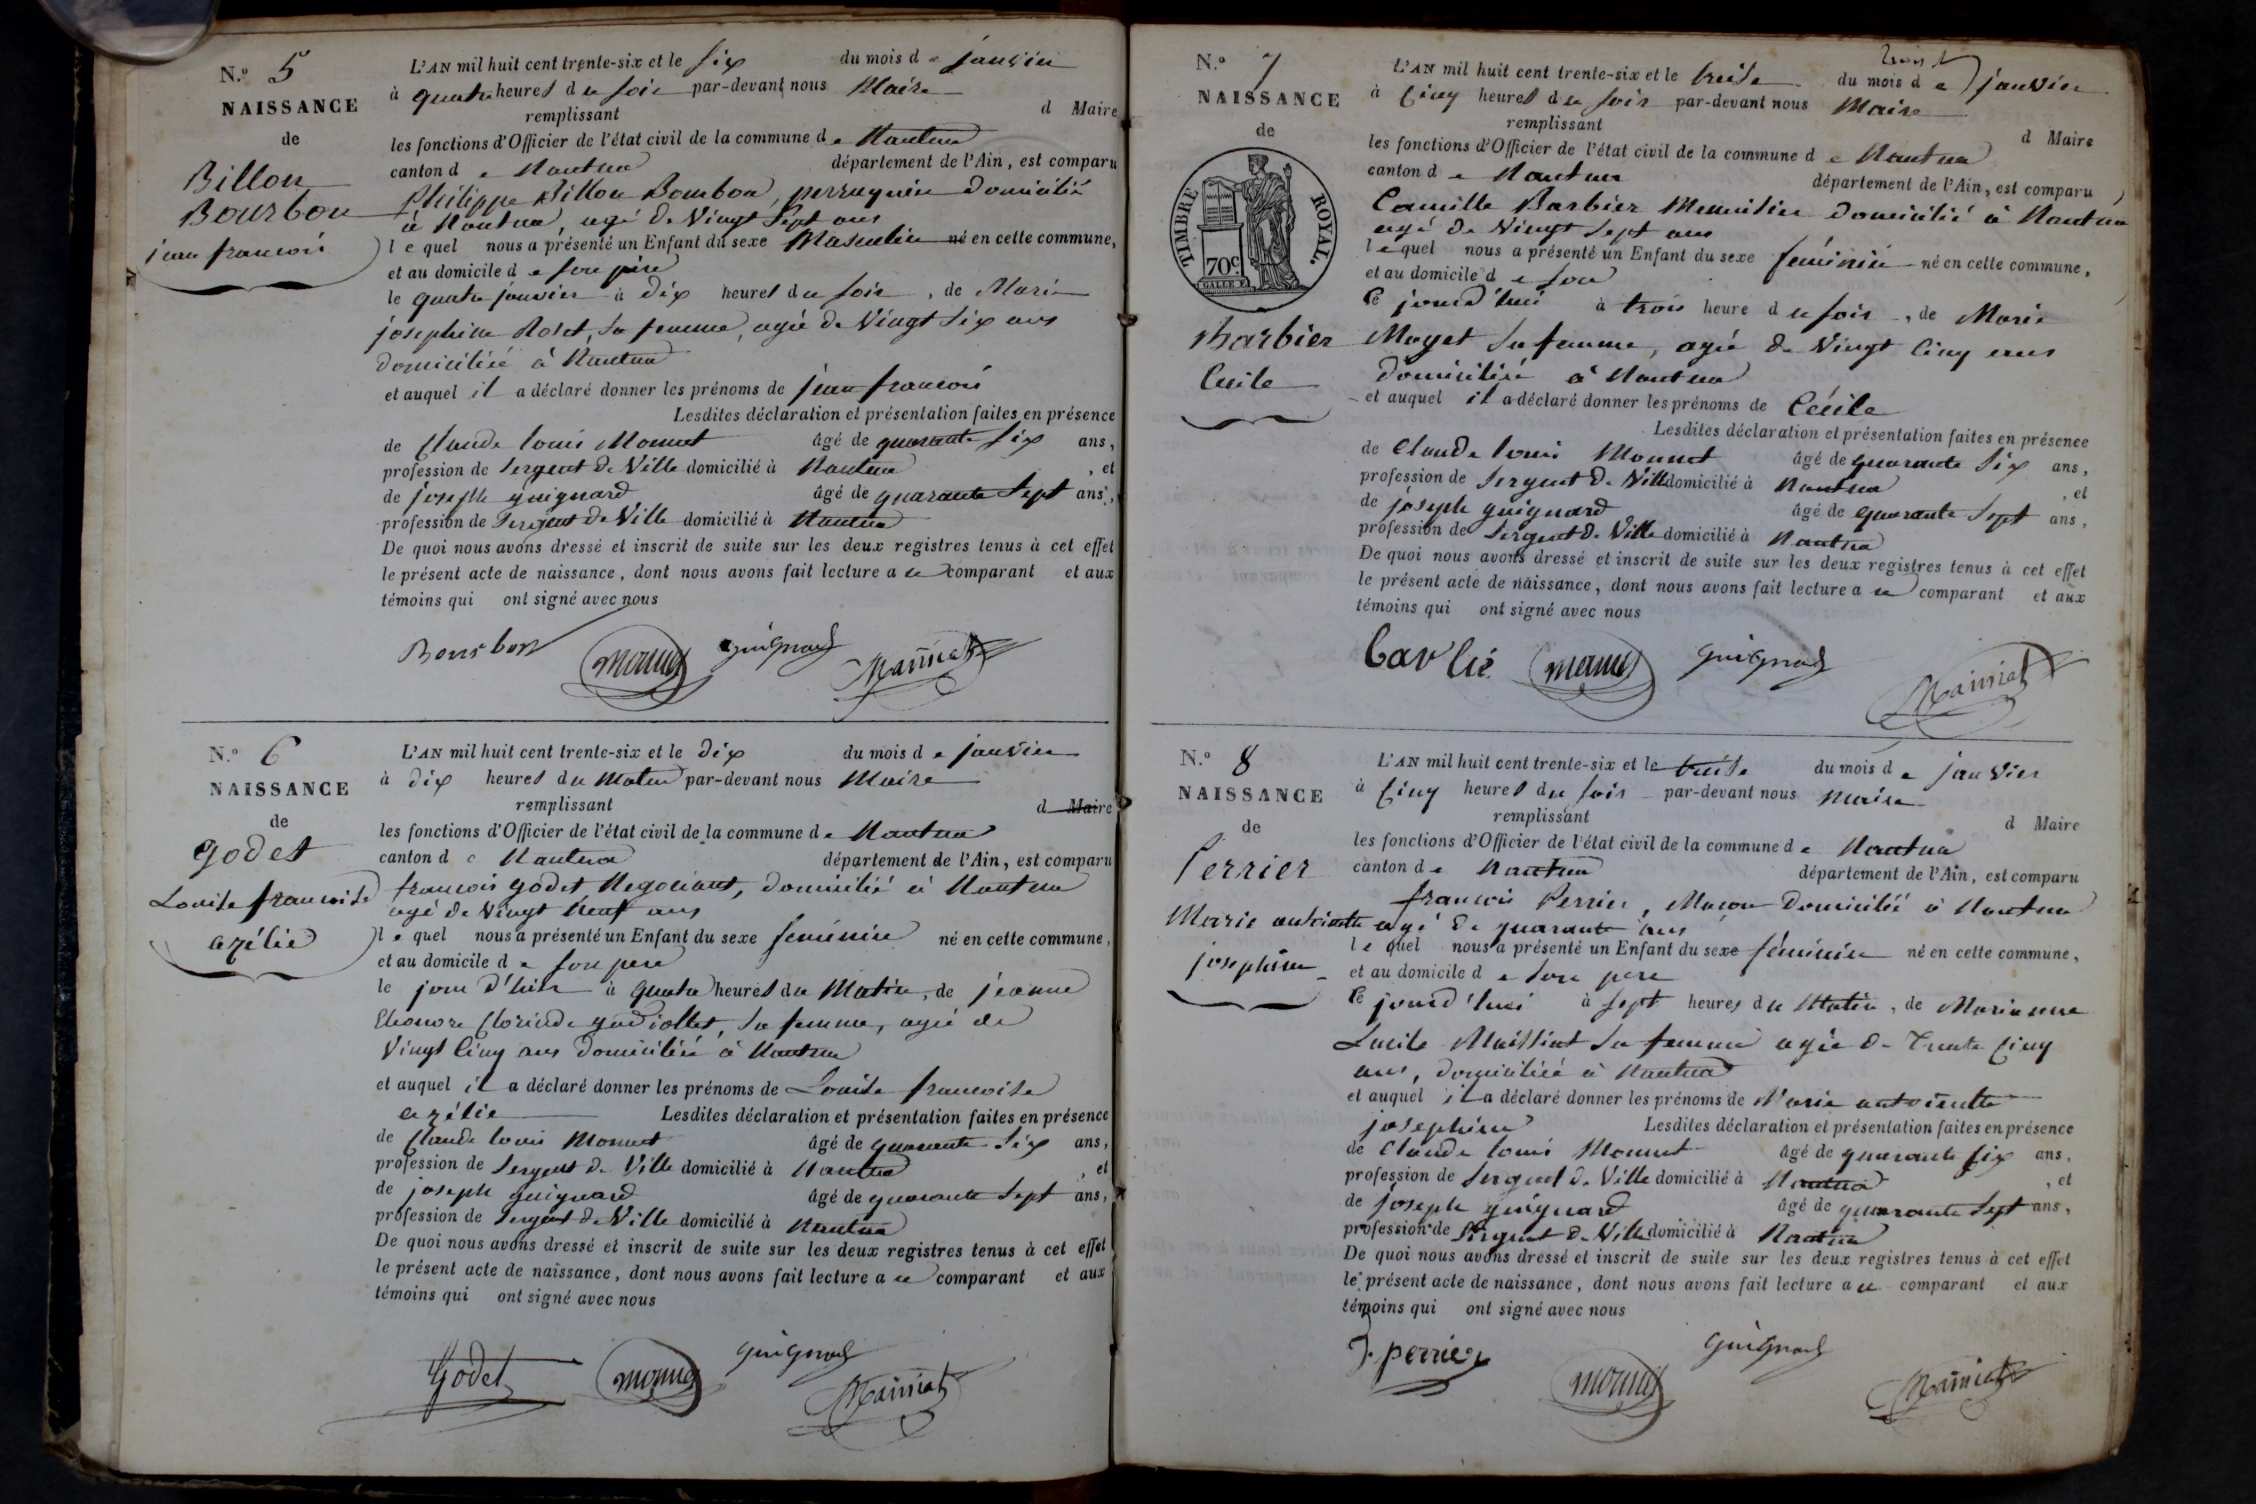 N.º 5
NAISSANCE
de
Billon
Bourbon
jean francois
L'AN mil huit cent trente-six et le six du mois de janvier
à quatre heures du soir par-devant nous Maire
remplissant d Maire
les fonctions d'Officier de l'état civil de la commune de Nantua
canton de Nantua département de l'Ain, est comparu
Philippe Billon Bourbon, perruquier domicilié
à Nantua, agé de Vingt Sept ans
lequel nous a présenté un Enfant du sexe Masculin né en cette commune,
et au domicile de son père
le quatre janvier à dix heures du soir, de Marie
josephine Rosset, sa femme, agée de Vingt Six ans
domiciliée à Nantua
et auquel il a déclaré donner les prénoms de jean francois
Lesdites déclaration et présentation faites en présence
de Claude louis Monnet âgé de quarante six ans,
profession de Sergent de Ville domicilié à Nantua, et
de joseph guignard âgé de quarante Sept ans,
profession de Sergent de Ville domicilié à Nantua
De quoi nous avons dressé et inscrit de suite sur les deux registres tenus à cet effet
le présent acte de naissance, dont nous avons fait lecture a ce comparant et aux
témoins qui ont signé avec nous
Bourbon monnet guignard
N.º 6
NAISSANCE
de
godet
Louise francoise
azélie
L'AN mil huit cent trente-six et le dix du mois de janvier
à dix heures du Matin par-devant nous Maire
remplissant d Maire
les fonctions d'Officier de l'état civil de la commune de Nantua
canton de Nantua département de l'Ain, est comparu
francois godet Negociant, domicilié à Nantua
agé de Vingt Neuf ans
lequel nous a présenté un Enfant du sexe feminin né en cette commune,
et au domicile de son pere
le jour d'hier à quatre heures du Matin, de jeanne
Eleonore Clorinde sa femme, agée de
Vingt Cinq ans domiciliée à Nantua
et auquel il a déclaré donner les prénoms de Louise francoise
azélie Lesdites déclaration et présentation faites en présence
de Claude louis Monnet âgé de quarante Six ans,
profession de Sergent de Ville domicilié à Nantua, et
de joseph guignard âgé de quarante Sept ans,
profession de Sergent de Ville domicilié à Nantua
De quoi nous avons dressé et inscrit de suite sur les deux registres tenus à cet effet
le présent acte de naissance, dont nous avons fait lecture a ce comparant et aux
témoins qui ont signé avec nous
Godet monnet guignard
N.º 7
NAISSANCE
de
TIMBRE ROYAL.
70c
Barbier
Cecile
L'AN mil huit cent trente-six et le treise du mois de janvier
à Cinq heures du soir par-devant nous Maire
remplissant d Maire
les fonctions d'Officier de l'état civil de la commune de Nantua
canton de Nantua département de l'Ain, est comparu
Camille Barbier Menuisier domicilié à Nantua
agé de Vingt Sept ans
lequel nous a présenté un Enfant du sexe féminin né en cette commune,
et au domicile de son
Ce jourd'hui à trois heure du soir, de Marie
Moyet sa femme, agée de Vingt Cinq ans
domiciliée à Nantua
et auquel il a déclaré donner les prénoms de Cécile
Lesdites déclaration et présentation faites en présence
de Claude louis Monnet âgé de quarante Six ans,
profession de Sergent de Ville domicilié à Nantua, et
de joseph guignard âgé de quarante Sept ans,
profession de Sergent de Ville domicilié à Nantua
De quoi nous avons dressé et inscrit de suite sur les deux registres tenus à cet effet
le présent acte de naissance, dont nous avons fait lecture a ce comparant et aux
témoins qui ont signé avec nous
monnet guignard
N.º 8
NAISSANCE
de
Perrier
Marie antoinette
josephine
L'AN mil huit cent trente-six et le treise du mois de janvier
à Cinq heures du soir par-devant nous Maire
remplissant d Maire
les fonctions d'Officier de l'état civil de la commune de Nantua
canton de Nantua département de l'Ain, est comparu
francois Perrier, Macon domicilié à Nantua
agé de quarante ans
lequel nous a présenté un Enfant du sexe féminin né en cette commune,
et au domicile de son pere
Ce jourd'hui à sept heures du Matin, de Marianne
Lucile Maissiat sa femme agée de Trente Cinq
ans, domiciliée à Nantua
et auquel il a déclaré donner les prénoms de Marie antoinette
josephine Lesdites déclaration et présentation faites en présence
de Claude louis Monnet âgé de quarante six ans,
profession de Sergent de Ville domicilié à Nantua, et
de joseph guignard âgé de quarante Sept ans,
profession de Sergent de Ville domicilié à Nantua
De quoi nous avons dressé et inscrit de suite sur les deux registres tenus à cet effet
le présent acte de naissance, dont nous avons fait lecture a ce comparant et aux
témoins qui ont signé avec nous
perrier monnet guignard